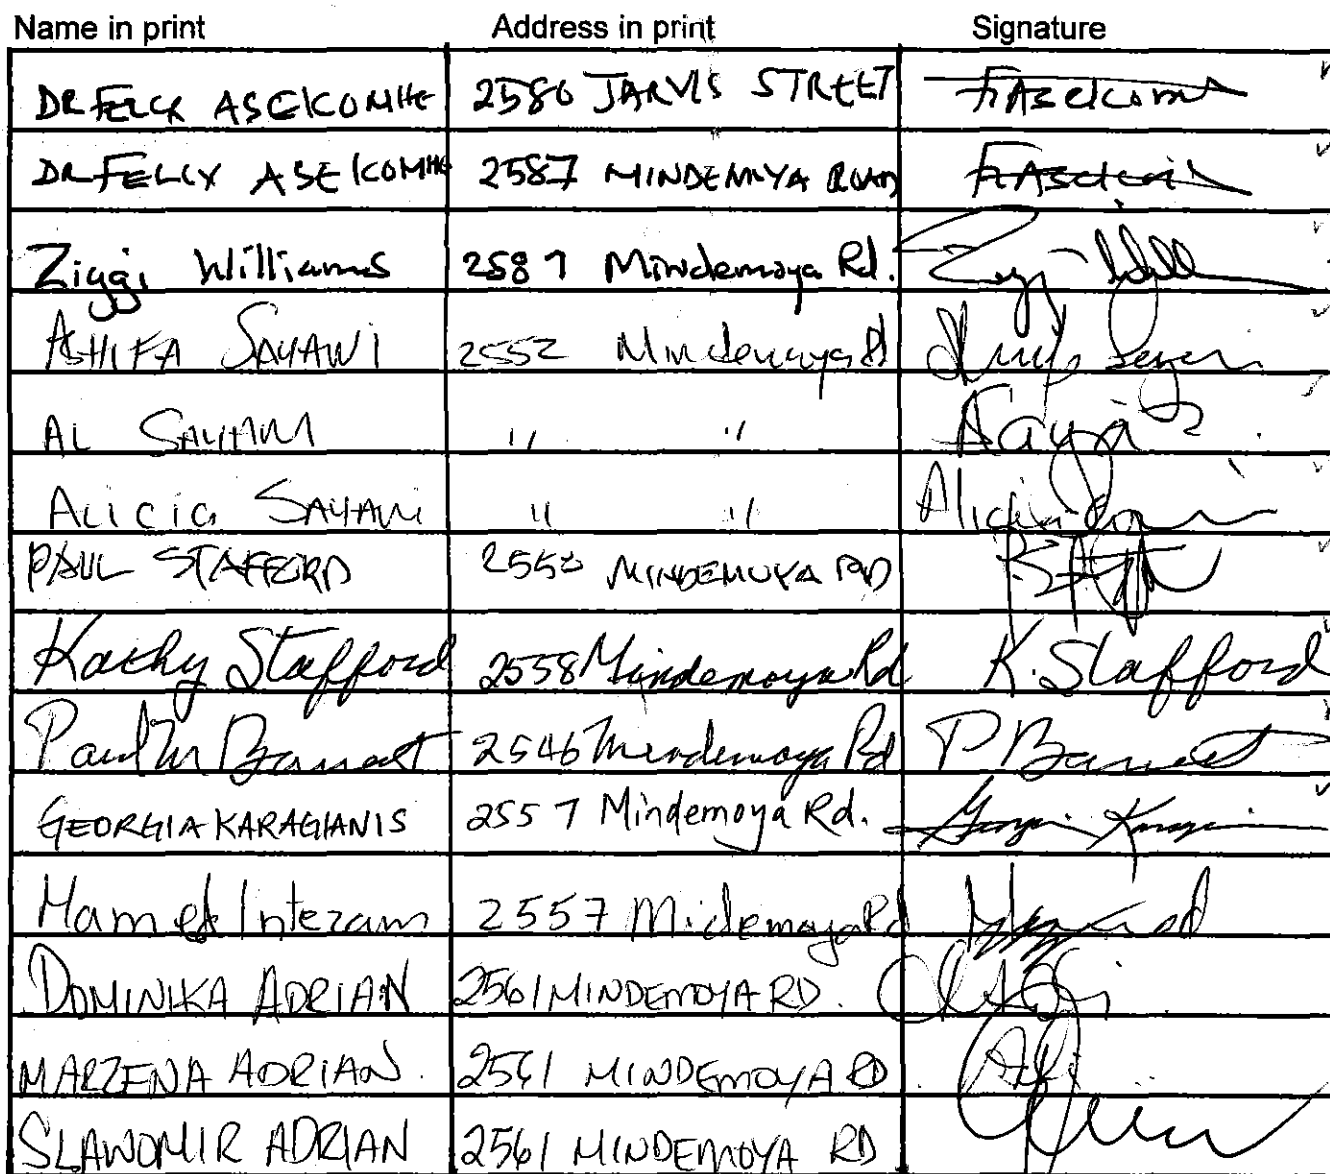 Name in print Address in print Signature
DR FELIX ASEKOMHE 2580 JARVIS STREET F. Asekome
DR FELIX ASEKOMHE 2587 MINDEMOYA ROAD
Ziggi Williams 2587 Mindemoya Rd.
ASHIFA SAYANI 2552 Mindemoya Rd
AL SAYANI " "
ALICIA SAYANI " " Alicia
PAUL STAFFORD 2558 MINDEMOYA RD
Kathy Stafford 2558 Mindemoya Rd K. Stafford
Paul M Barnett 2546 Mindemoya Rd P Barnett
GEORGIA KARAGIANIS 2557 Mindemoya Rd.
Hamed Interam 2557 Midemoya Rd
DOMINIKA ADRIAN 2561 MINDEMOYA RD.
MARZENA ADRIAN. 2561 MINDEMOYA RD.
SLAWOMIR ADRIAN 2561 MINDEMOYA RD